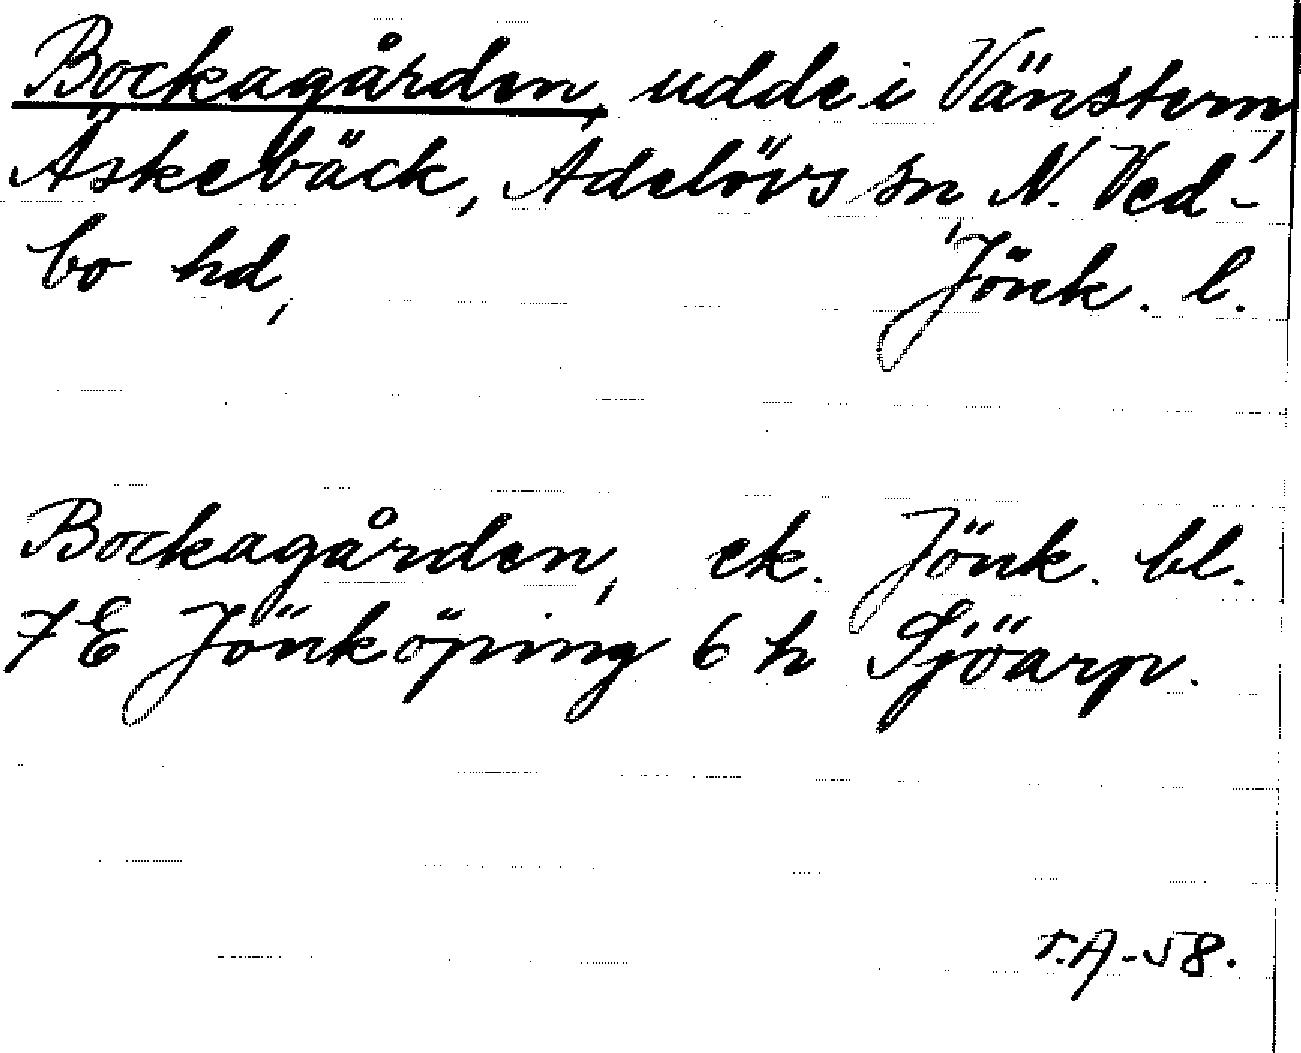 Bockagården, udde i Vänstern,
Äskebäck, Adelövs sn N. Ved-
bo hd, Jönk. l.
Bockagården, ek. Jönk. bl.
7 E Jönköping 6 h Sjöarp.
T.A-58.